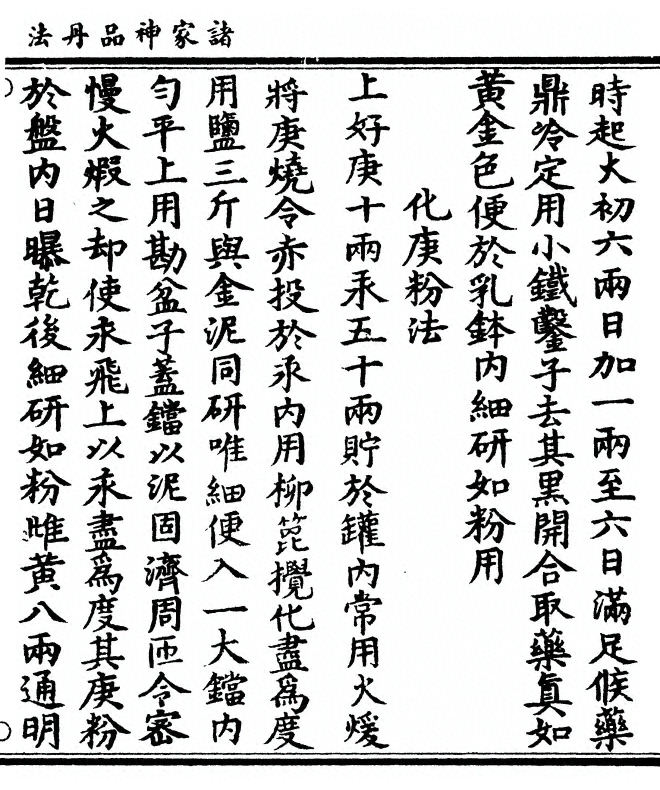 諸家神品丹法
時起火初六兩日加一兩至六日滿足候藥
鼎冷定用小鐵鑿子去其黑開合取藥真如
黃金色便於乳鉢內細研如粉用
化庚粉法
上好庚十兩汞五十兩貯於罐內常用火煖
將庚燒令赤投於汞內用柳箆攪化盡為度
用鹽三斤與金泥同研唯細便入一大鐺內
勻平上用勘盆子蓋鐺以泥固濟周匝令密
慢火煆之却使汞飛上以汞盡為度其庚粉
於盤內日曝乾後細研如粉雌黃八兩通明